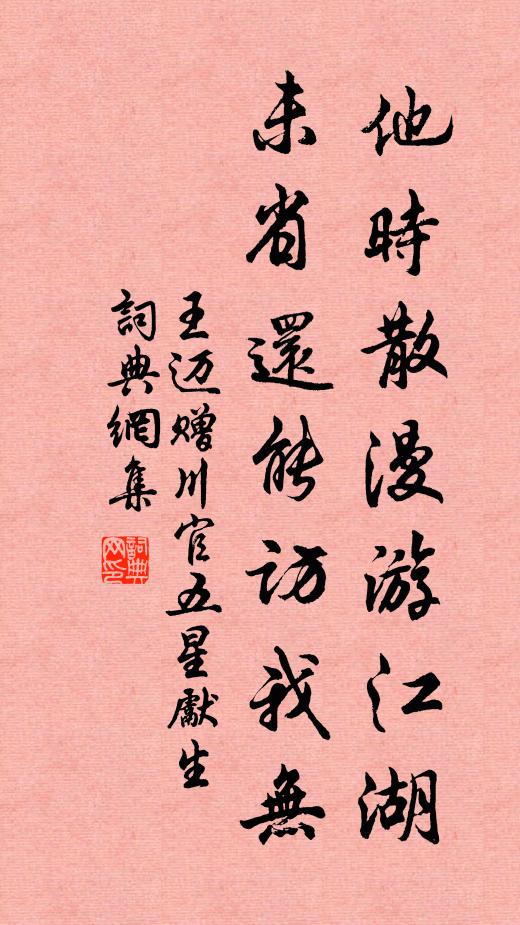 他時散漫游江湖
未省還能訪我無
王迈贈川官五星獻生
詞典網集
詞典网印